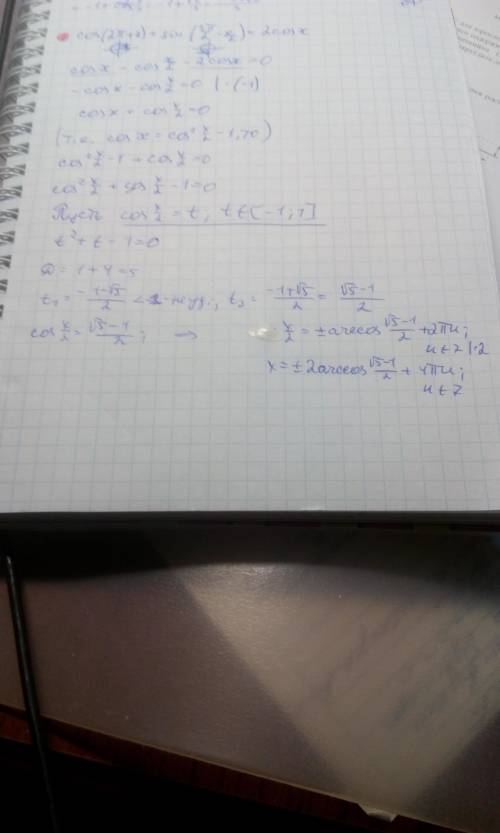 cos(2π+x)+sin(π/2-x/2)=2cosx
cosx - cos x/2 - 2cosx = 0
-cosx - cos x/2 = 0 |·(-1)
cosx + cos x/2 = 0
(т.к. cosx = cos² x/2 - 1, то)
cos² x/2 - 1 + cos x/2 = 0
cos² x/2 + cos x/2 - 1 = 0
Пусть cos x/2 = t, t∈[-1;1]
t² + t - 1 = 0
D = 1+4=5
t₁ = (-1-√5)/2 < -1 - не уд., t₂ = (-1+√5)/2 = (√5-1)/2
cos x/2 = (√5-1)/2; → x/2 = ±arccos (√5-1)/2 + 2πn;
n∈Z |·2
x = ±2arccos (√5-1)/2 + 4πn;
n∈Z